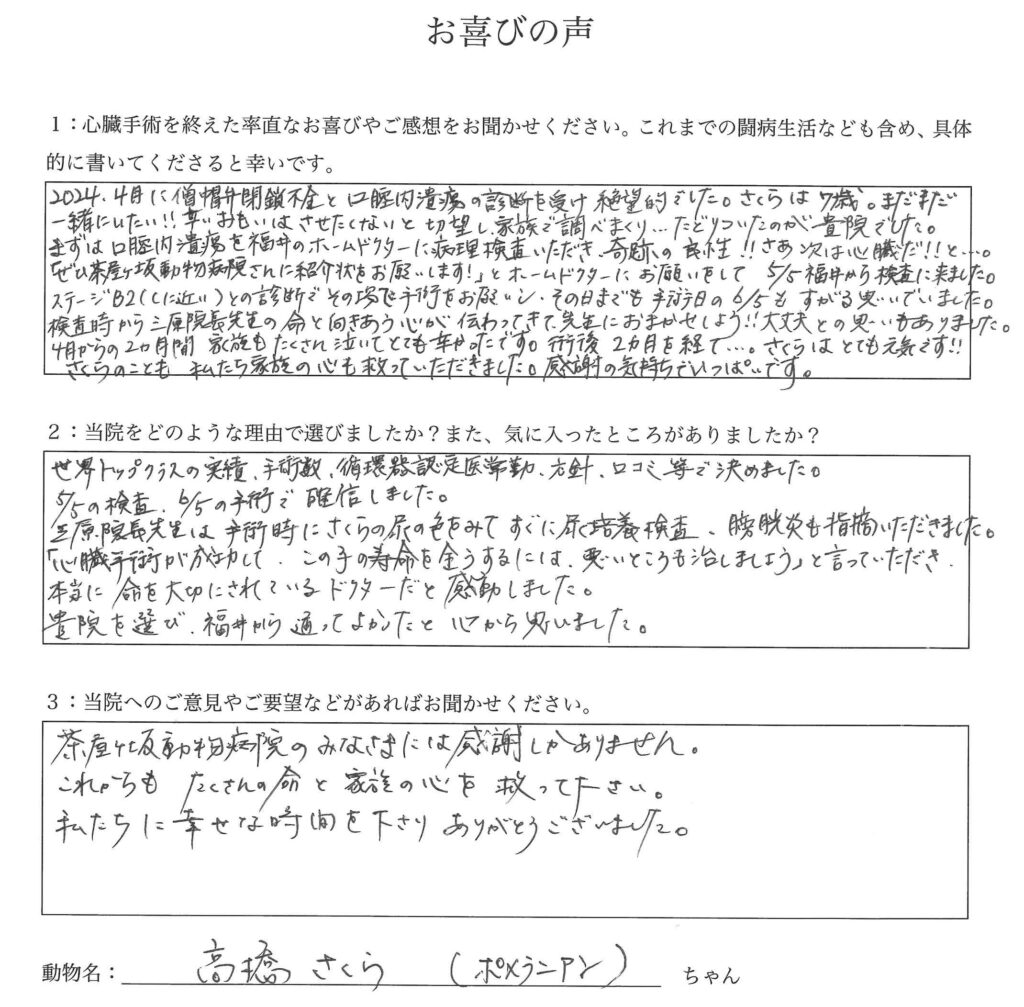 お喜びの声
1：心臓手術を終えた率直なお喜びやご感想をお聞かせください。これまでの闘病生活なども含め、具体
的に書いてくださると幸いです。
2024.4月に僧帽弁閉鎖不全と口腔内潰瘍の診断を受け絶望的でした。さくらは7歳。まだまだ
一緒にいたい!!辛いおもいはさせたくないと切望し、家族で調べまくり…たどりついたのが貴院でした。
まずは口腔内潰瘍を福井のホームドクターに病理検査いただき、奇跡の良性!!さあ次は心臓だ!!と…。
「ぜひ茶屋ヶ坂動物病院さんに紹介状をお願いします!」とホームドクターにお願いをして5/5福井から検査に来ました。
ステージB2(Cに近い)との診断でその場で手術をお願いし、その日までも手術日の6/5もすがる思いでいました。
検査時から三原院長先生の命と向きあう心が伝わってきて、先生におまかせしよう!!大丈夫との思いもありました。
4月からの2カ月間家族もたくさん泣いてとても辛かったです。術後2カ月を経て…。さくらはとても元気です!!
さくらのことも私たち家族の心も救っていただきました。感謝の気持ちでいっぱいです。
2：当院をどのような理由で選びましたか？また、気に入ったところがありましたか？
世界トップクラスの実績、手術数、循環器認定医常勤、方針、口コミ等で決めました。
5/5の検査、6/5の手術で確信しました。
三原院長先生は手術時にさくらの尿の色をみてすぐに尿培養検査、膀胱炎も指摘いただきました。
「心臓手術が成功して、この子の寿命を全うするには、悪いところも治しましょう」と言っていただき、
本当に命を大切にされているドクターだと感動しました。
貴院を選び、福井から通ってよかったと心から思いました。
3：当院へのご意見やご要望などがあればお聞かせください。
茶屋ヶ坂動物病院のみなさまには感謝しかありません。
これからもたくさんの命と家族の心を救って下さい。
私たちに幸せな時間を下さりありがとうございました。
動物名：高橋さくら(ポメラニアン)ちゃん